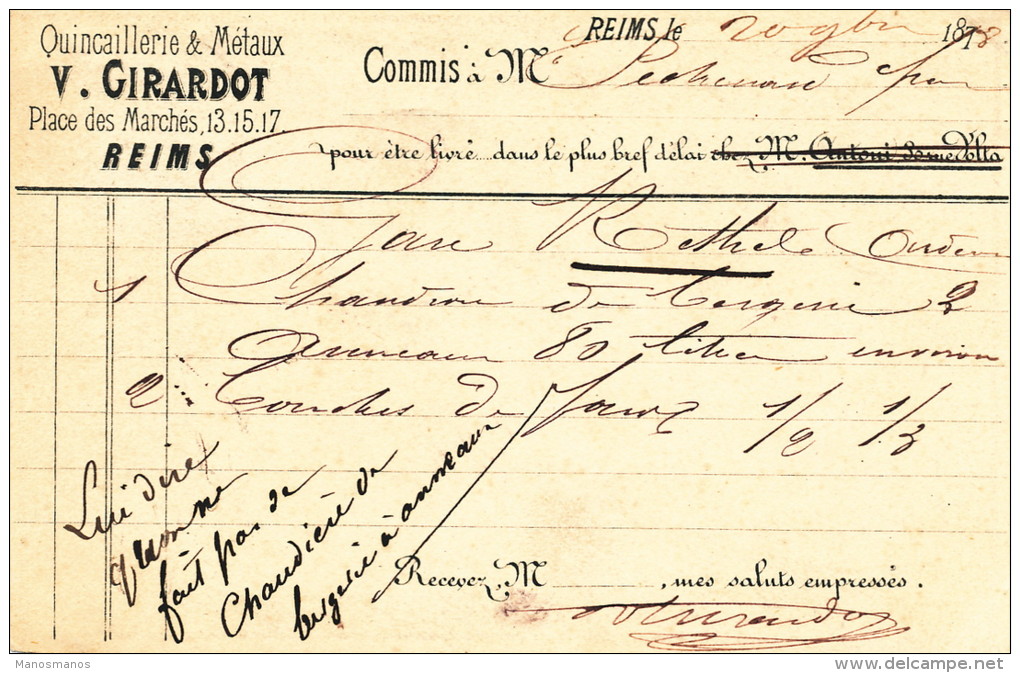 Quincaillerie & Métaux
V. GIRARDOT
Place des Marchés, 13.15.17.
REIMS
REIMS, le 20 9bre 1878
Commis à Mr
pour être livré....dans le plus bref délai chez M. Antoni
Gare Rethel
1 Chaudron de bergerie 2
anneaux 80 litres environ
2 Couches de 1/2 1/3
Lui dire
qu'on ne
fait pas de
Chaudière de
bergerie à anneaux
Recevez, M , mes saluts empressés.
VGirardot
Manosmanos
delcampe.net